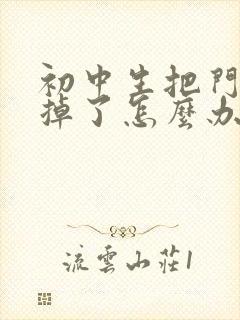 初中生把門
掉了怎麼办
流雲山莊1